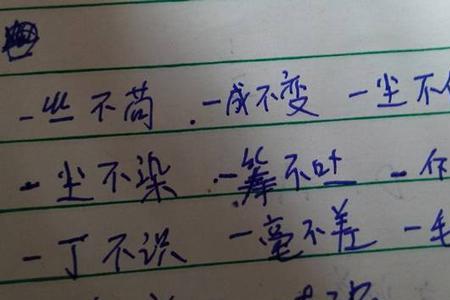 一丝不苟 一成不变 一尘不
一尘不染 一筹不
一丁不识 一毫不差 一毛